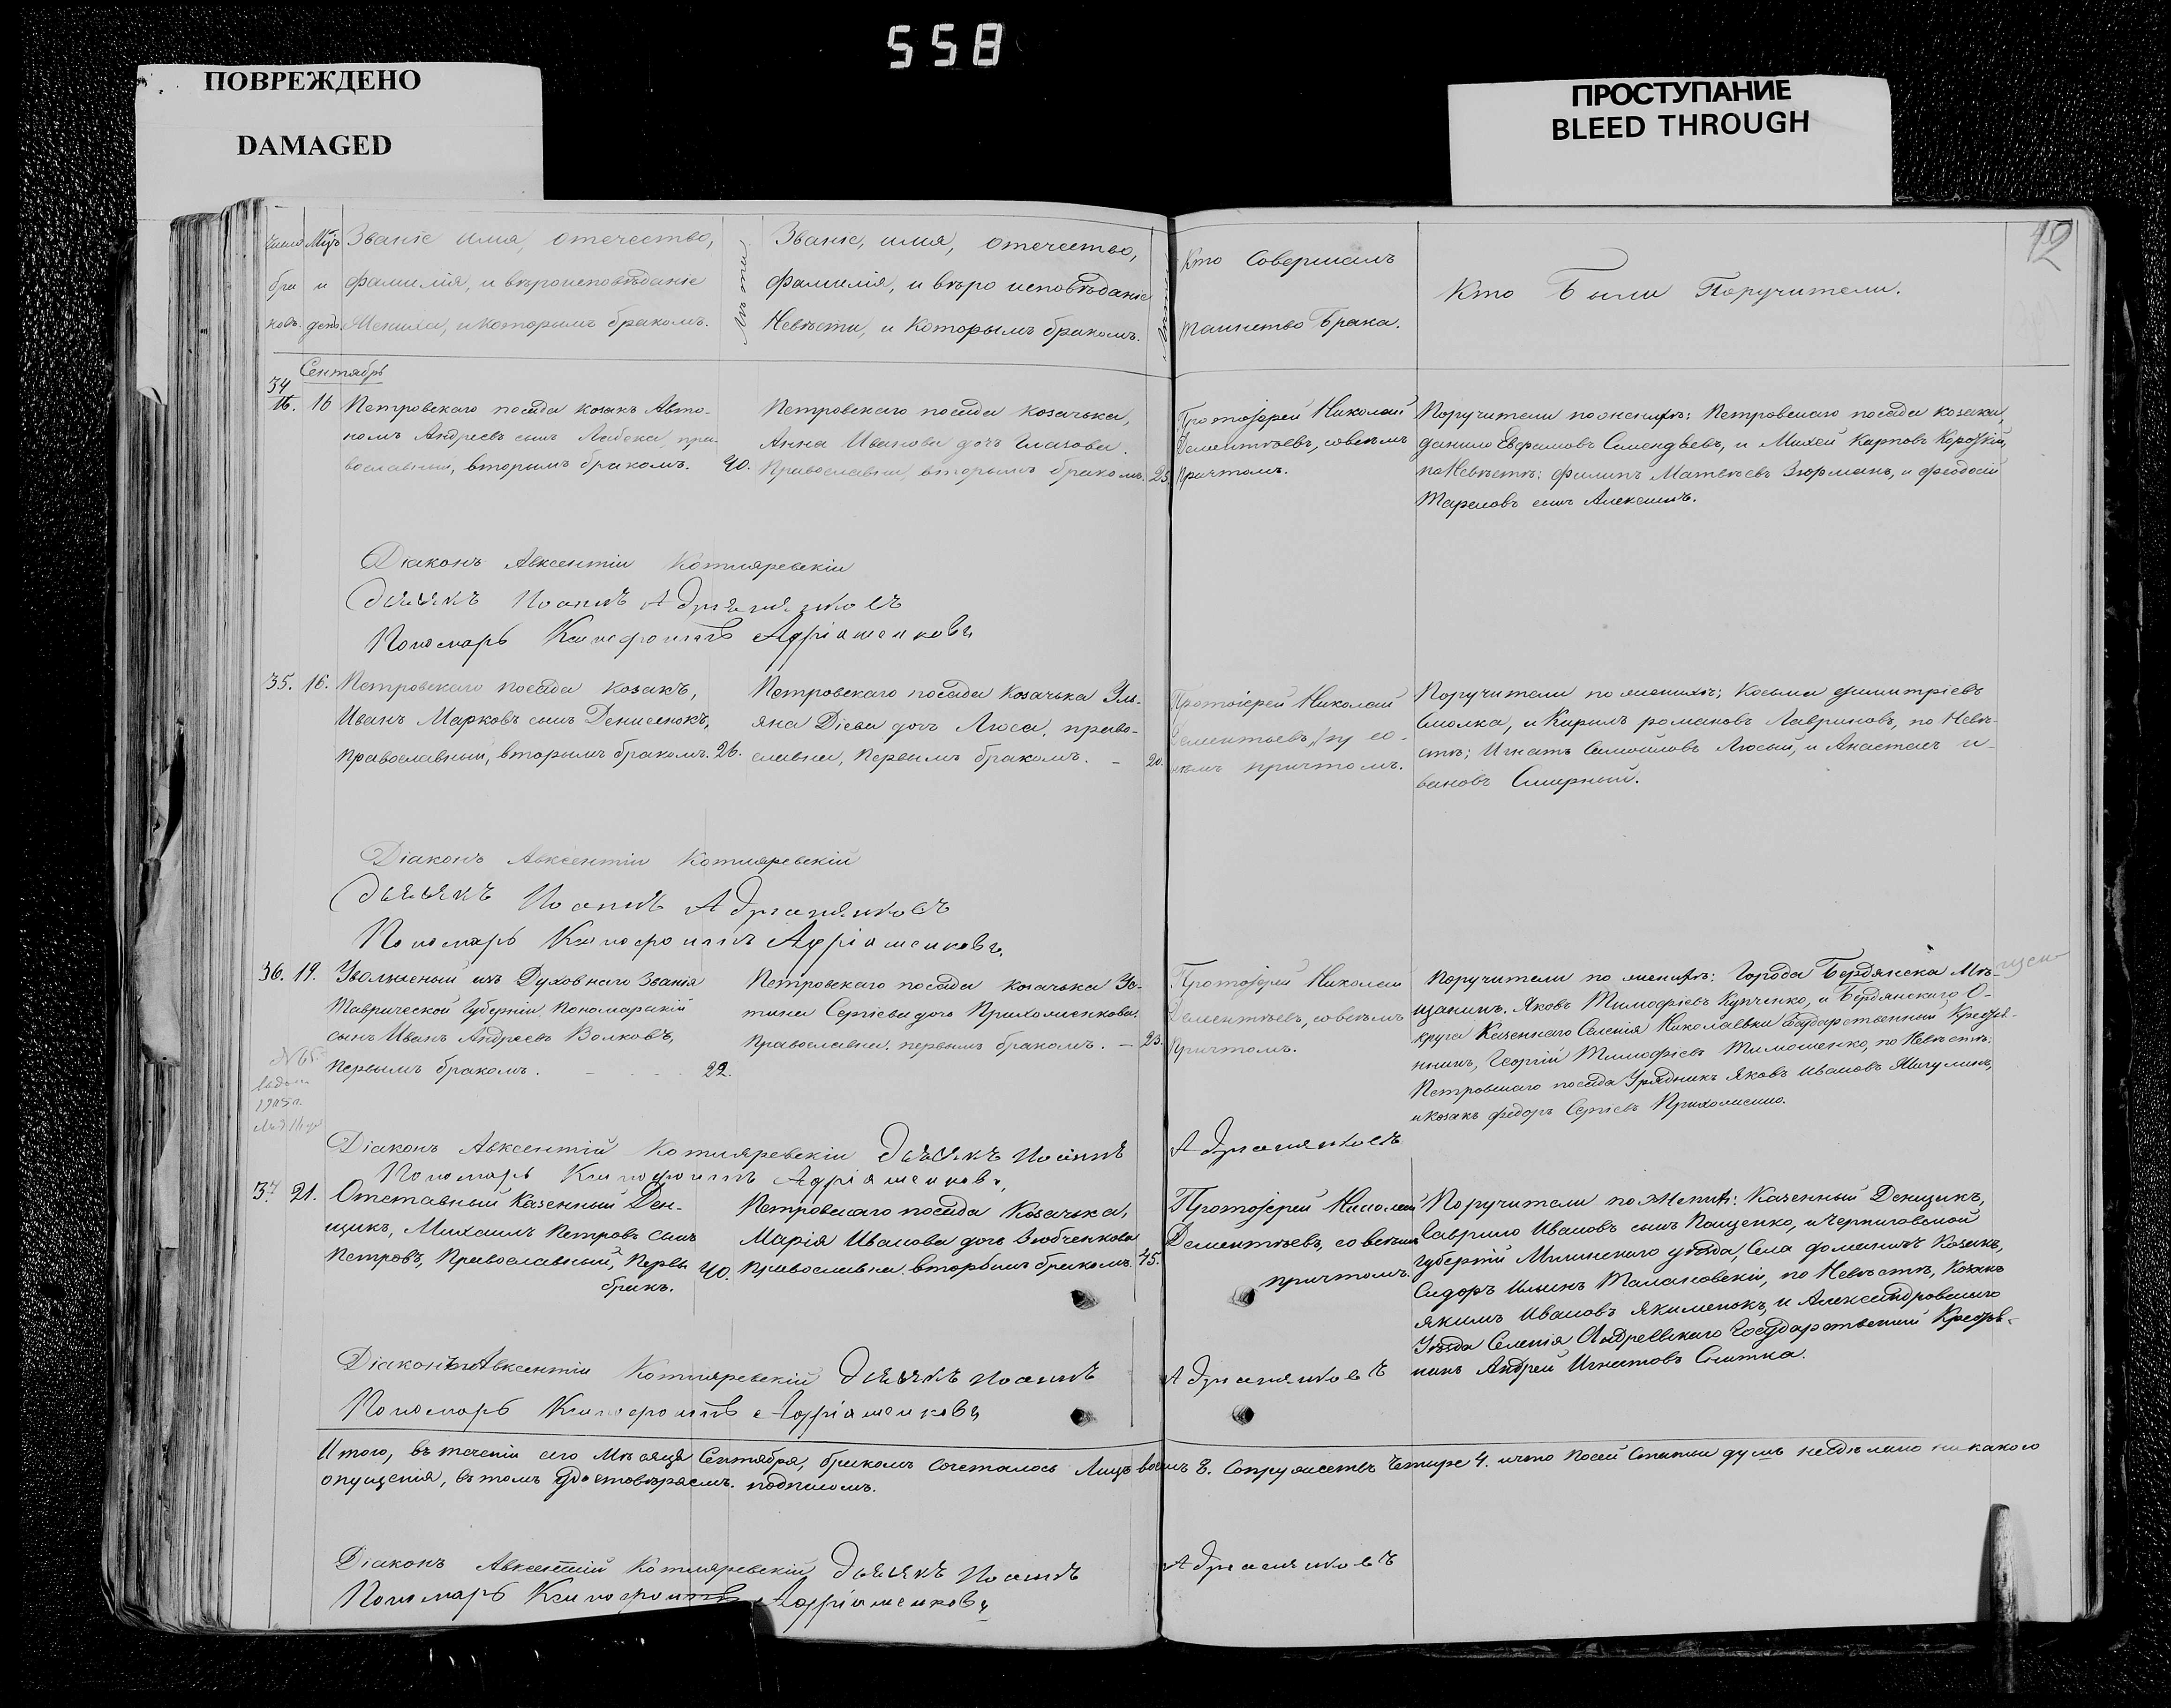 558
ПОВРЕЖДЕНО
DAMAGED
ПРОСТУПАНИЕ
BLEED THROUGH
12
Число Мцъ Званіе имя, отечество,
бра и фамилія, и вѣроисповѣданіе
ковъ. день. Жениха, и которымъ бракомъ.
Званіе, имя, отечество,
фамилія, и вѣро исповѣданіе
Невѣсти, и которымъ бракомъ.
Кто Совершалъ
таинство Брака.
Кто Были Поручители.
Сентябрь
34 16
Петровскаго посада козакъ Авто-
номъ Андреевъ сынъ пра-
вославный, вторымъ бракомъ. 40.
Петровскаго посада козачька,
Анна Иванова дочь
Православна, вторымъ бракомъ. 25.
Протоіерей Николай
Дементьевъ, совсѣмъ
Причтомъ.
Поручители по женихѣ: Петровскаго посада козаки,
данило Евфамовъ и Михей Карповъ Короткій,
по Невѣстѣ: филипъ Матвѣевъ и феодосій
сынъ
Діаконъ Авксентій Котляревскій
Дьячкъ Иоаннъ
Пономарь Ксинофонтъ
35. 16.
Петровскаго посада козакъ,
Иванъ Марковъ сынъ Денисенокъ,
Православный, вторымъ бракомъ. 26.
Петровскаго посада Козачька Уль-
яна Діева дочь Люса, право-
славна, Первымъ бракомъ. – 20.
Протоіерей Николай
Дементьевъ, со
причтомъ.
Поручители по женихѣ; Косьма димитріевъ
Смолка, и Кирилъ романовъ Лавриновъ, по Невѣ-
стѣ; Игнатъ Самойловъ Люсый, и Анастасъ и-
вановъ Смирный.
Діаконъ Авксентій Котляревскій
Дьячкъ Иоаннъ
Пономарь Ксинофонтъ
36. 19.
Уволненый изъ Духовнаго Званія
Таврической Губерніи, Пономарскій
сынъ Иванъ Андреевъ Волковъ,
Первымъ бракомъ. 22.
Петровскаго посада козачька Ус-
тина Сергіева дочь Прихоменкова.
Православна. первымъ бракомъ. – 23.
Протоіерей Николай
Дементьевъ, совсѣмъ
Причтомъ.
Поручители по женихѣ: Города Бердянска Мѣ-
щанинъ. Яковъ Тимофіевъ Купченко, и Бердянскаго О-
круга Казеннаго Селенія Николаевки Государственный Крестья-
нинъ, Георгій Тимофіевъ Тимошенко, по Невѣстѣ:
Петровскаго посада Урядникъ Яковъ Ивановъ
и козакъ федоръ Сергіевъ Прихоменко.
Діаконъ Авксентій Котляревскій Дьячкъ Иоаннъ
Пономарь Ксинофонтъ
37 21.
Отставный Казенный Ден-
щикъ, Михаилъ Петровъ сынъ
Петровъ, Православный, Первы 40.
бракъ.
Петровскаго посада Козачька,
Марія Иванова дочь
Православна. вторымъ бракомъ. 45.
Протоіерей Николай
Дементьевъ, со всѣмъ
причтомъ.
Поручители по Женихѣ: Казенный Денщикъ,
Гаврило Ивановъ сынъ Пащенко, и Черниговской
Губерніи уѣзда, Села Козакъ,
Сидоръ Талановскій, по Невѣстѣ, Козакъ
Якимъ Ивановъ Якименокъ, и Александровскаго
Уѣзда Селенія Андреевскаго Государственный Крестья-
нинъ Андрей Игнатовъ Снитка.
Діаконъ Авксентій Котляревскій Дьячкъ Иоаннъ
Пономарь Ксинофонтъ
Итого, въ теченіи сего Мѣсяца Сентября, бракомъ сочеталось Лицъ восемъ 8. Супружествъ Четыре 4. и что
опущенія, въ томъ Удостовѣряемъ. подписомъ.
Діаконъ Авксентій Котляревскій Дьячкъ Иоаннъ
Пономарь Ксинофонтъ